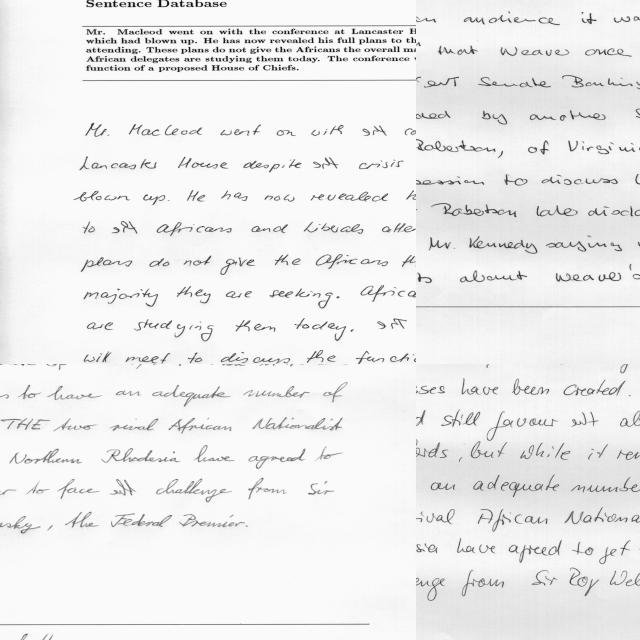 Sentence Database
Mr. Macleod went on with the conference at Lancaster H
which had blown up. He has now revealed his full plans to th
attending. These plans do not give the Africans the overall ma
African delegates are studying them today. The conference
function of a proposed House of Chiefs.
Mr. Macleod went on with co
Lancaster House despite crisis
blown up. He has now revealed h
to Africans and Liberals atte
plans do not give the Africans th
majority they are seeking. Africa
are studying them today.
will meet to discuss the functi
en audience it wa
that Weaver once
Senate Banking
ded by another S
Robertson, of Virgini
session to discuss
Robertson late discl
Mr. Kennedy saying
about Weaver's
s to have an adequate number of
THE two rival African Nationalist
Northern Rhodesia have agreed to
r to face challenge from Sir
nsky, the Federal Premier.
ses have been created.
d still favour
ards, but while it re
an adequate number
ival African Nationa
sia have agreed to get
enge from Sir Roy Wel